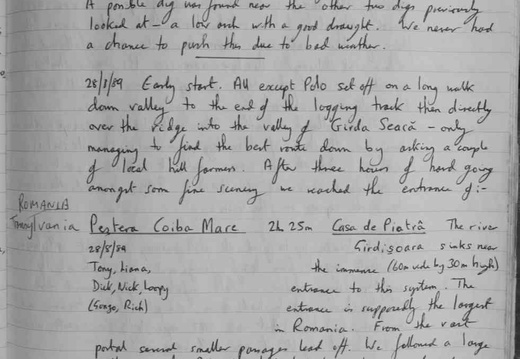 A possible dig was found near the other two digs previously
looked at – a low arch with a good draught. We never had
a chance to push this due to bad weather.
28/8/89 Early start. All except Polo set off on a long walk
down valley to the end of the logging track then directly
over the ridge into the valley of Girda Seacă – only
managing to find the best route down by asking a couple
of local hill farmers. After three hours of hard going
amongst some fine scenery we reached the entrance of :-
ROMANIA
Transylvania Peştera Coiba Mare 2h 25m Casa de Piatră The river
28/8/89 Girdişoara sinks near
Tony, Liana, the immense (60m wide by 30m high)
Dick, Nick, Loopy entrance to this system. The
(Gonzo, Rich) entrance is supposedly the largest
in Romania. From the vast
portal several smaller passages lead off. We followed a large